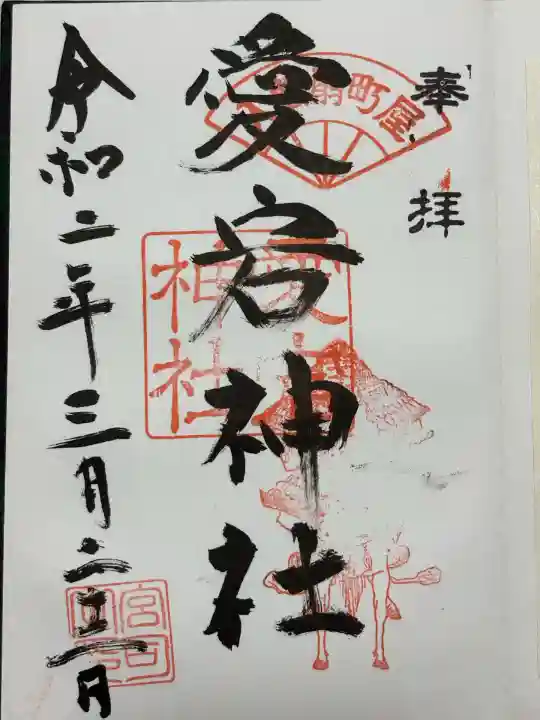 奉拝
扇町屋
愛宕神社
愛宕
神社
令和二年三月二十一日
宮司